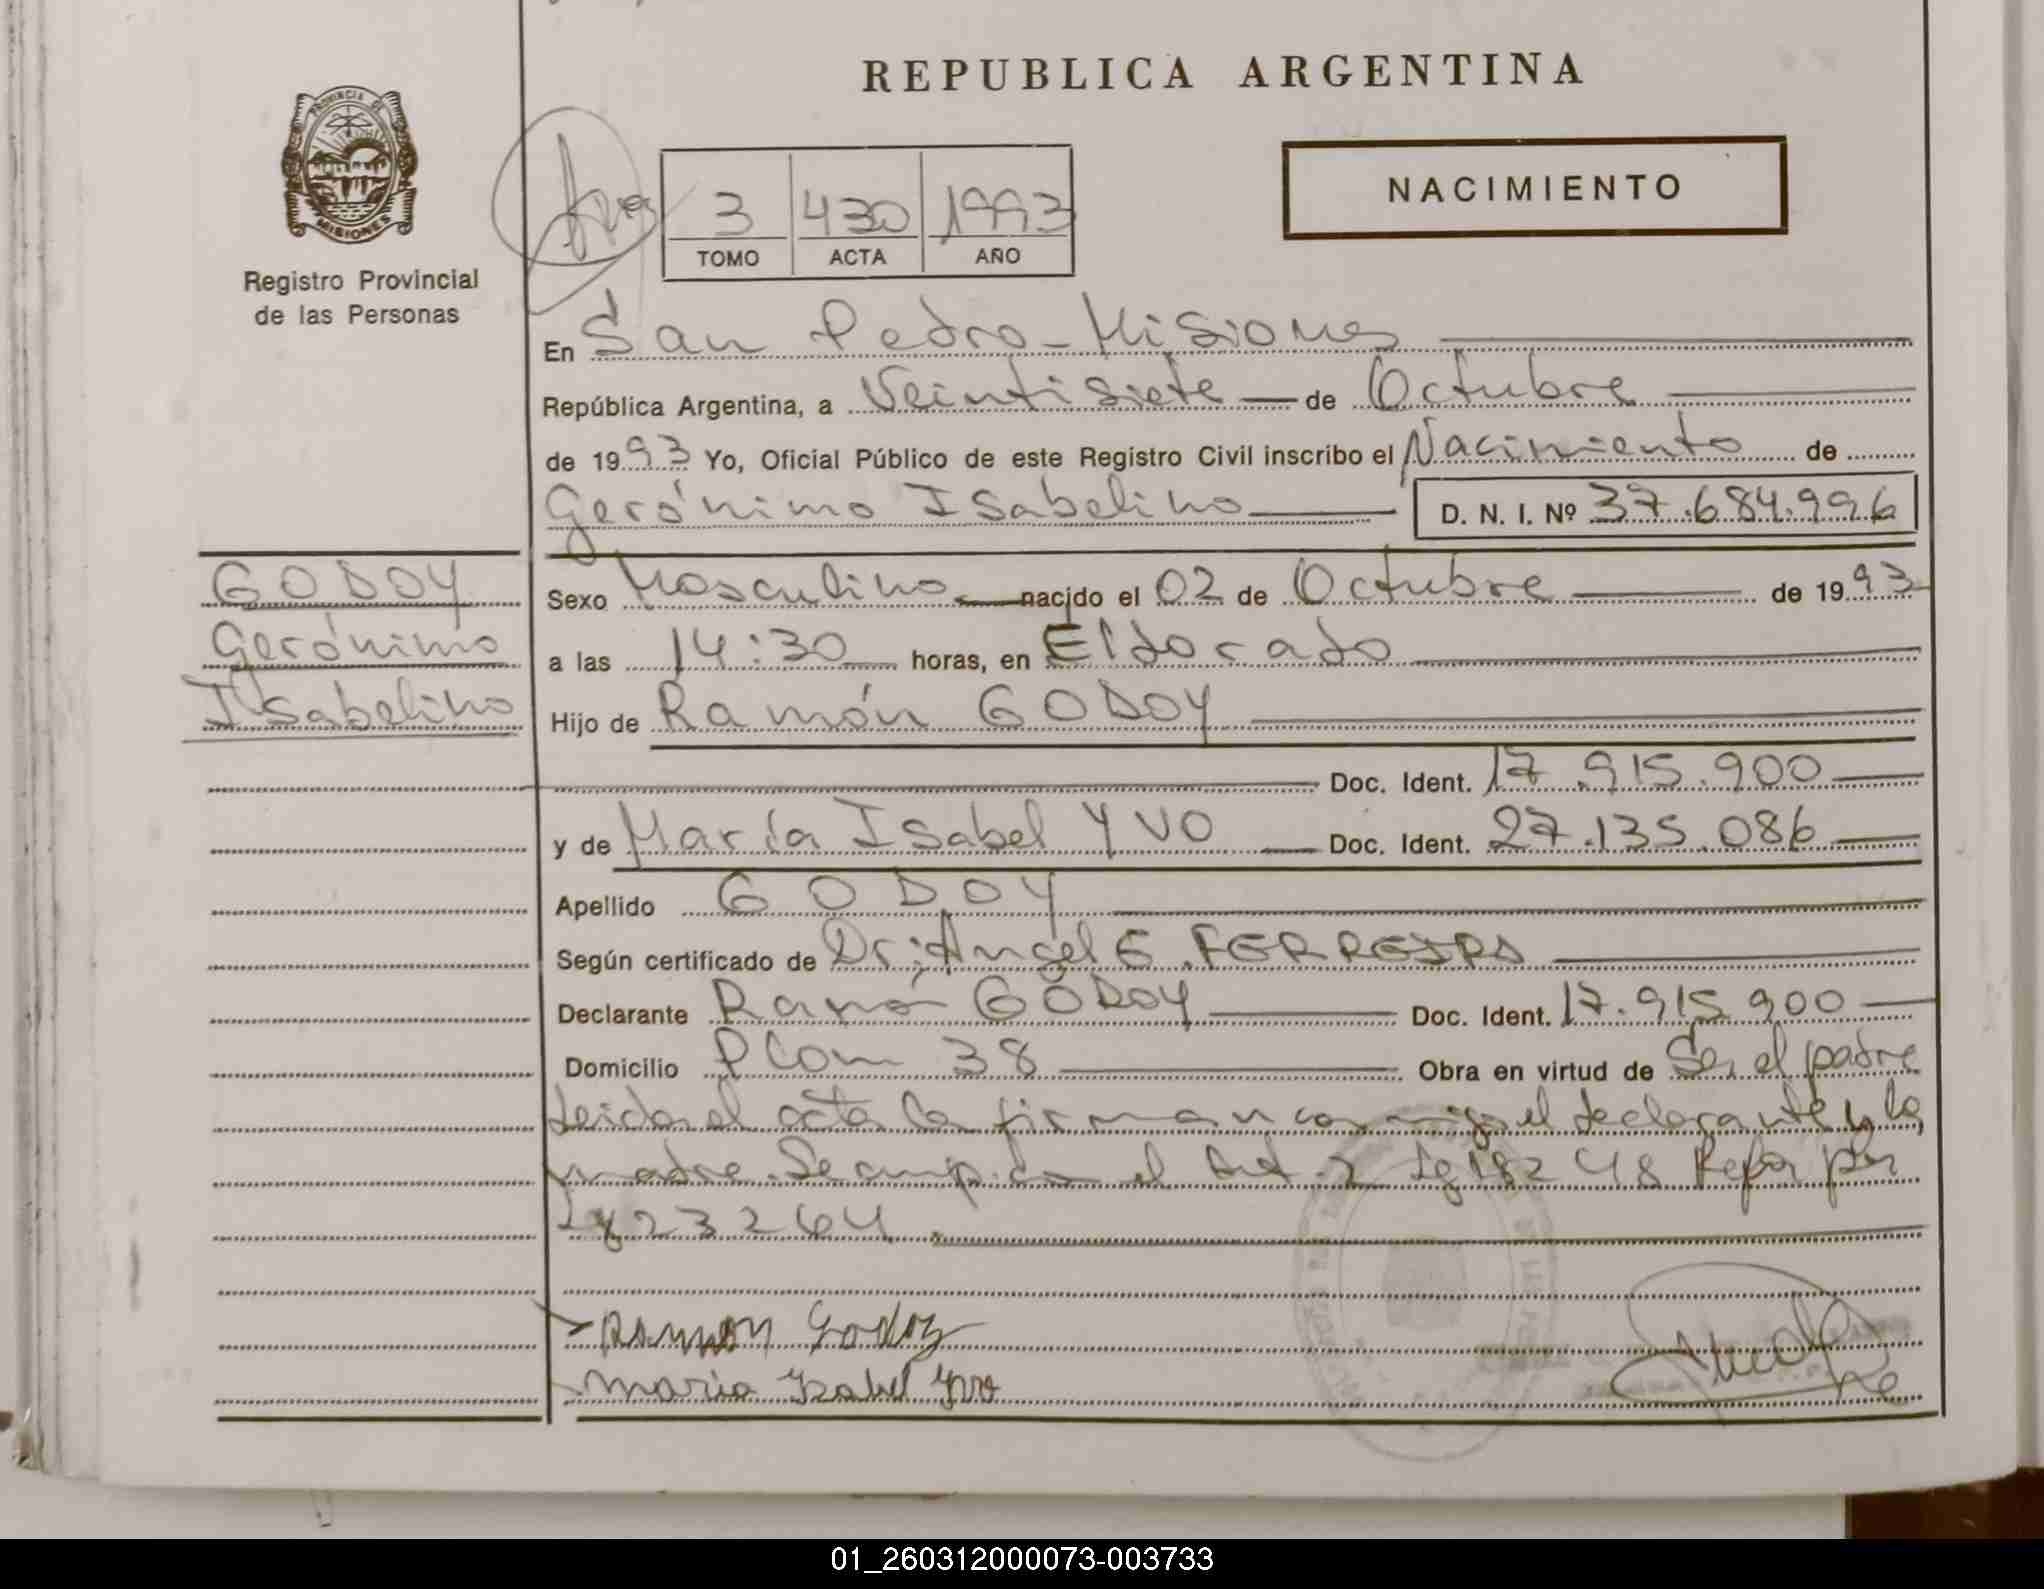 REPUBLICA ARGENTINA
PROVINCIA DE
MISIONES
Registro Provincial
de las Personas
3 430 1993
TOMO ACTA AÑO
NACIMIENTO
En San Pedro - Misiones
República Argentina, a Veintisiete de Octubre
de 1993 Yo, Oficial Público de este Registro Civil inscribo el Nacimiento de
Gerónimo Isabelino D. N. I. Nº 37.684.996
GODOY
Gerónimo
Isabelino
Sexo Masculino nacido el 02 de Octubre de 1993
a las 14:30 horas, en Eldorado
Hijo de Ramón GODOY
Doc. Ident. 17.915.900
y de María Isabel YVO Doc. Ident. 27.135.086
Apellido GODOY
Según certificado de Dr: Angel E. FERREIRA
Declarante Ramón GODOY Doc. Ident. 17.915.900
Domicilio PCom 38 Obra en virtud de Ser el padre
Leida el acta la firman conmigo el declarante y la
madre. Se cumple con el Art. 2 Lg 182 48 Refor por
Lg 23264
Ramon Godoy
Maria Isabel Yvo
01_260312000073-003733